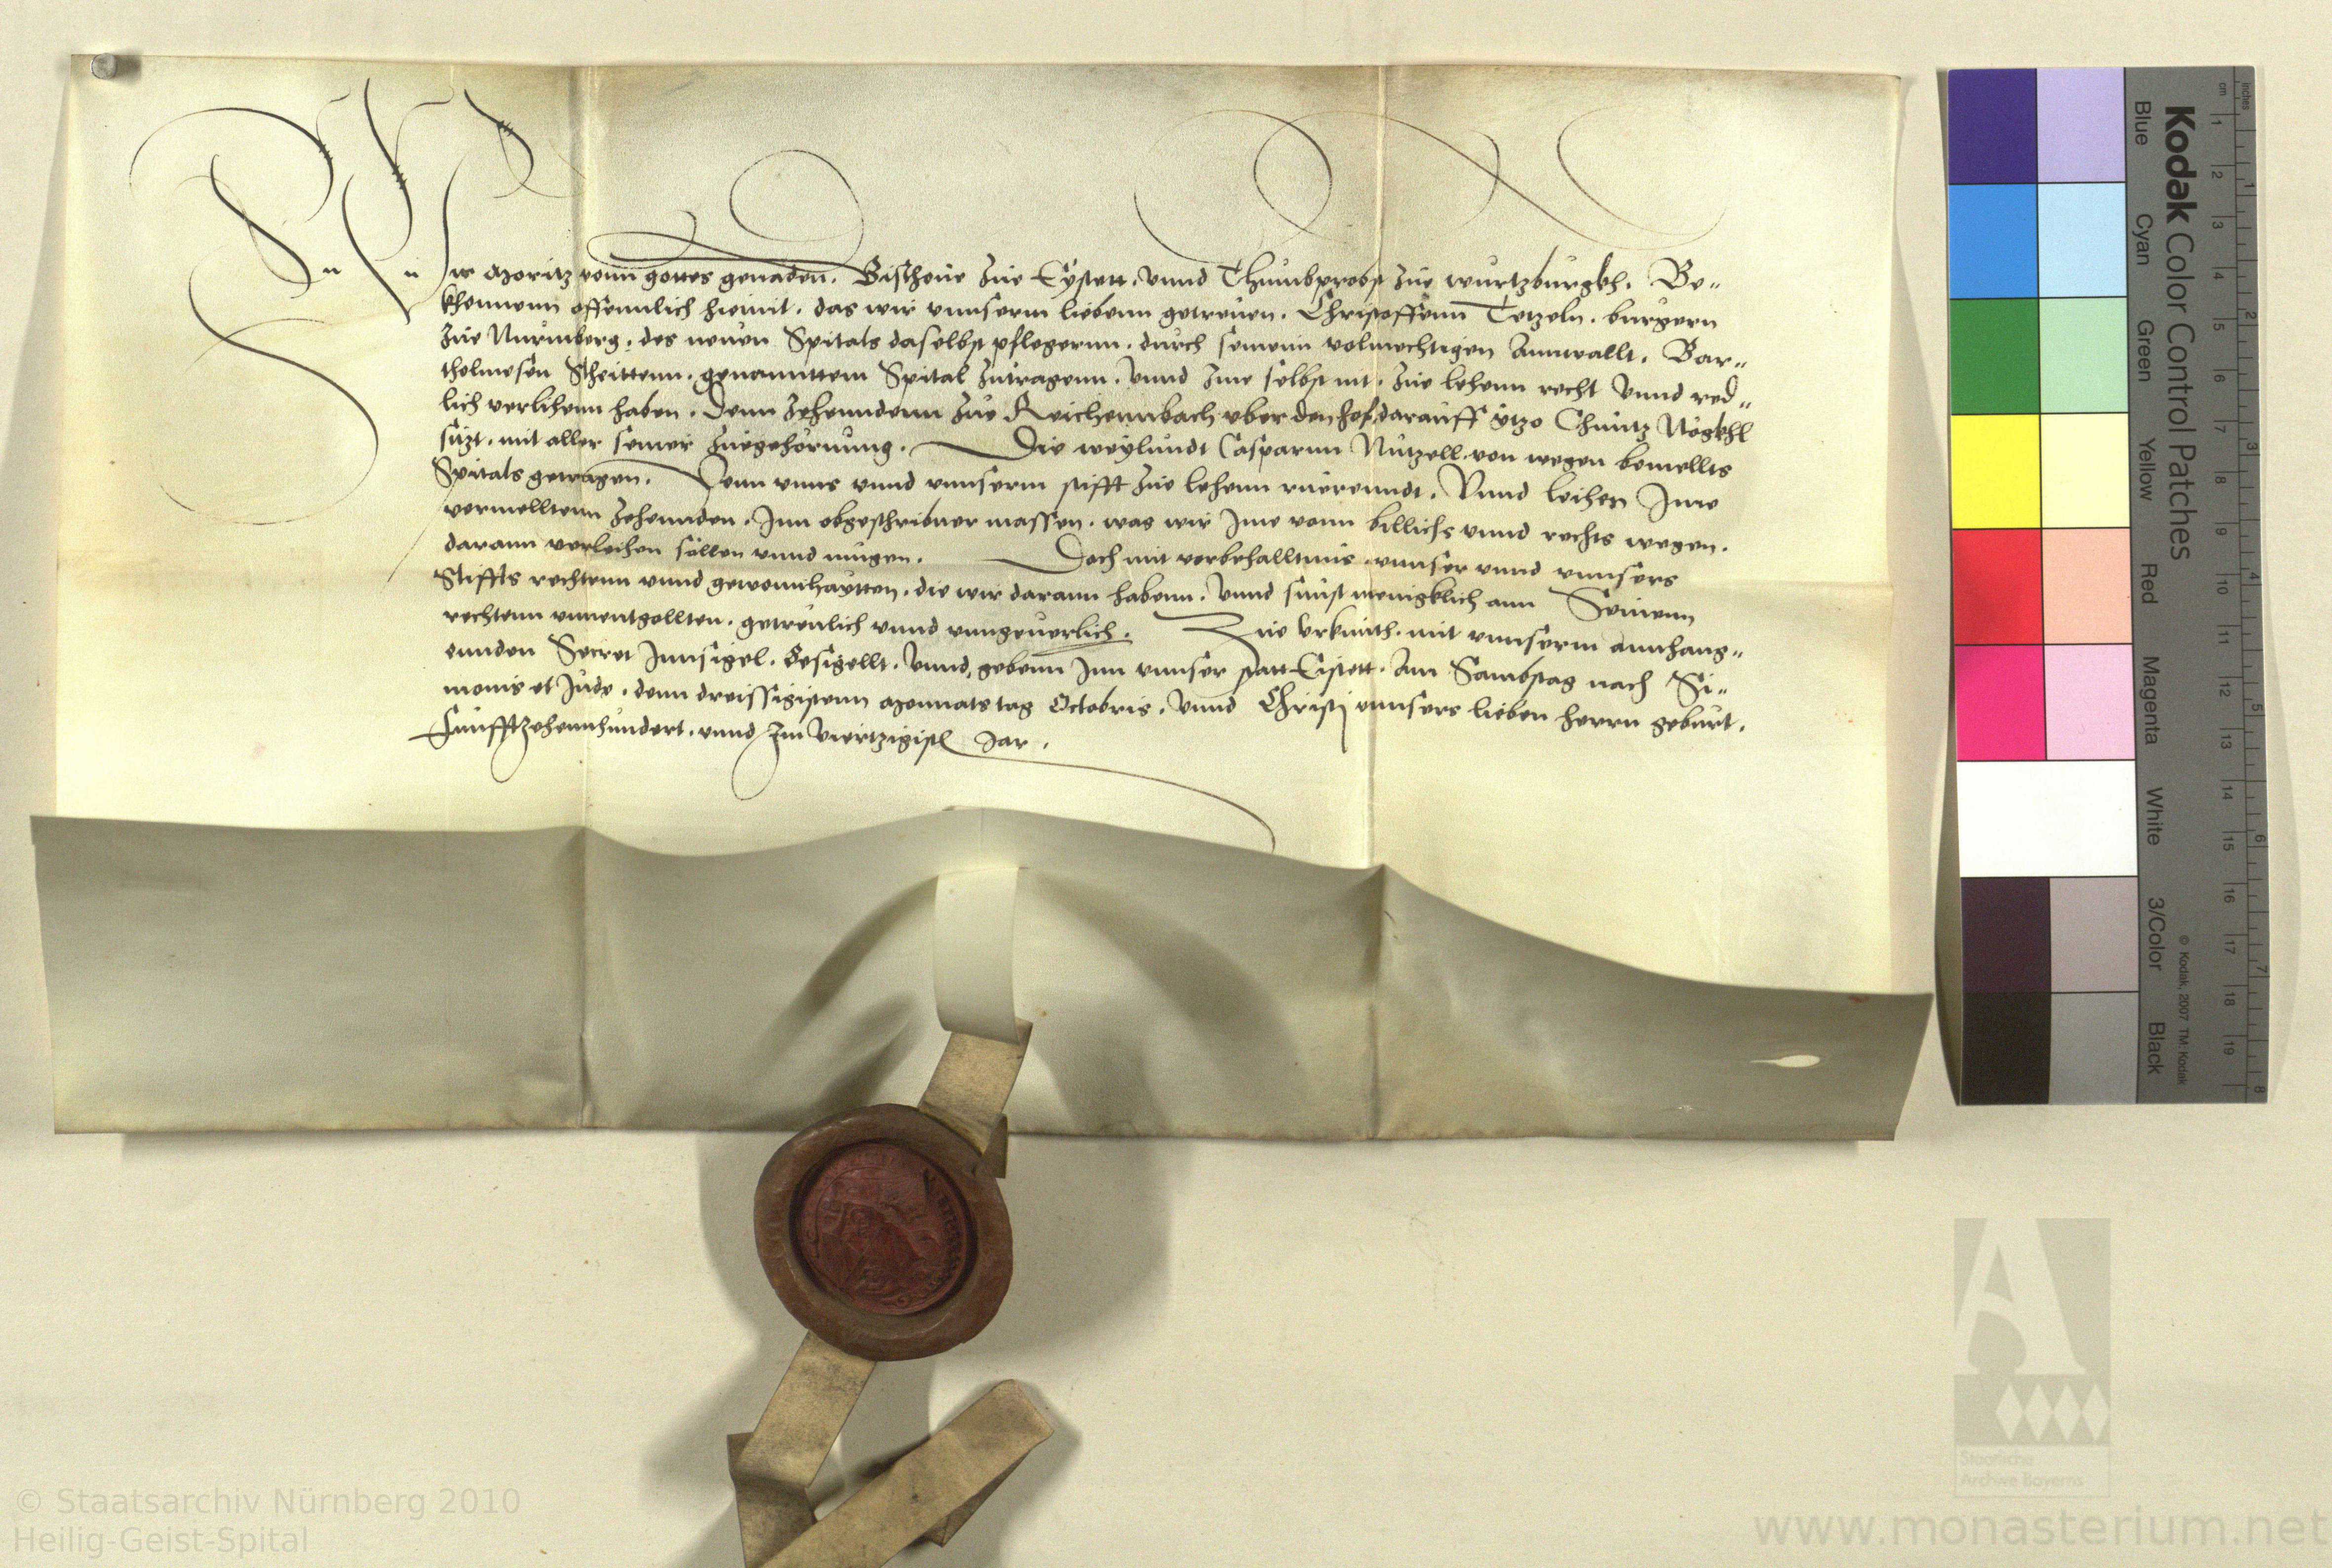 Wir Moritz vonn gottes genaden. Bischoue zue Eystett. vnnd Thumbprobst zue wurtzburgkh. Be„
khennenn offennlich hiemit. das wir vnnserm liebenn getreuen. Christoffenn Tetzeln. burgern
zue Nurmberg. des neuen Spitals daselbst pflegernn. durch seinenn volmechtigen Annwallt. Bar„
tholmesen Scheittenn. genannttem Spital zutragenn. vnnd Ime selbst nit. zue lehenn recht vnnd red„
lich verlihenn haben. Denn zehenndenn zue Reichennbach vber den hof, darauff ytzo Chuntz Nögkhl
sitzt. mit aller seiner zuegehörnung. Die weylundt Casparnn Nutzell von wegen bemellts
Spitals getragen. Vonn vnns vnnd vnnserm stifft zue lehenn ruerenndt. Vnnd leihen Ime
vermelltenn zehennden. Inn obgeschribner massen. was wir Ime vonn billichs vnnd rechts wegen.
darann verleihen söllen vnnd mugen. Doch mit vorbehalltnus vnnser vnnd vnnsers
Stiffts rechtenn vnnd gewonnhaytten. die wir darann habenn. Vnnd sunst menigklich ann Seinenn
rechtenn vnnentgollten. getreulich vnnd vngeuerlich. Zue Vrkunth. mit vnnserm annhang„
ennden Secret Innsigel. Besigellt. Vnnd gebenn Inn vnnser statt Eistett. Am Sambstag nach Si„
monis et Jude. denn dreissigistenn Monnats tag Octobris. Vnnd Christj vnnsers lieben herrn geburt.
Funfftzehennhundert. vnnd Im Viertzigist Jar.
Kodak Color Control Patches
Blue Cyan Green Yellow Red Magenta White 3/Color Black
© Kodak, 2007 TM: Kodak
inches 1 2 3 4 5 6 7 8
cm 1 2 3 4 5 6 7 8 9 10 11 12 13 14 15 16 17 18 19
Staatliche
Archive Bayerns
© Staatsarchiv Nürnberg 2010
Heilig-Geist-Spital
www.monasterium.net